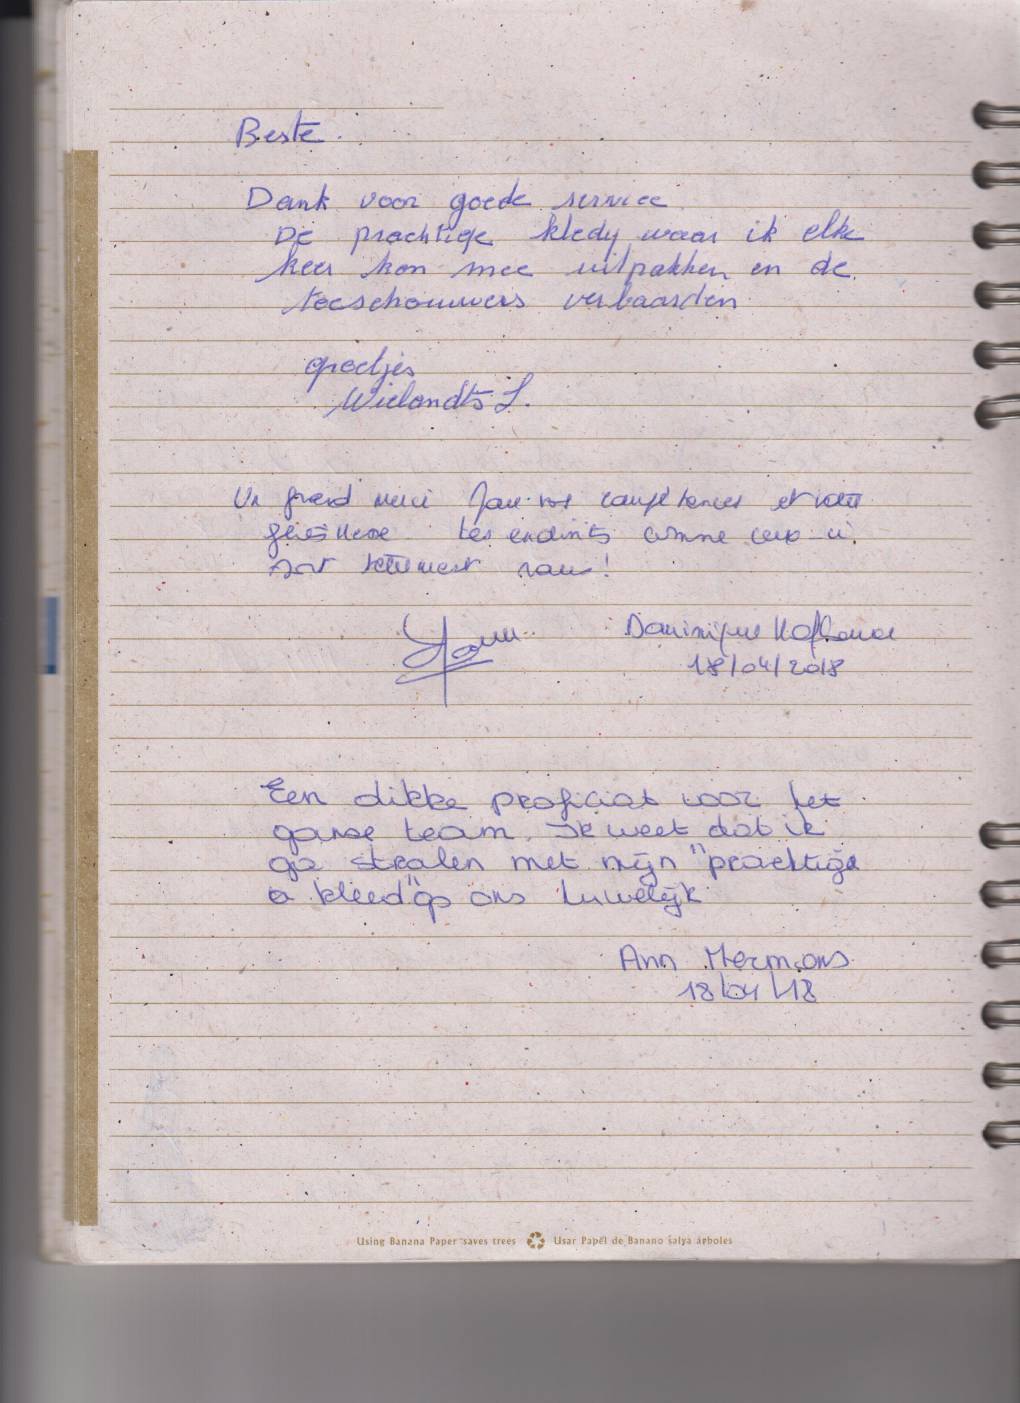 Beste.
Dank voor goede service
De prachtige kledij waar ik elke
keer kon mee uitpakken en de
toeschouwers verbaasden
groetjes
Wielandts L.
Un grand merci pour vos compétences et votre
gentillesse. Les endroits comme ceux-ci
sont tellement rares!
Dominique
18/04/2018
Een dikke proficiat voor het
ganse team. Ik weet dat ik
ga stralen met mijn "prachtige
kleed" op ons huwelijk
Ann Mermans
18/04/18
Using Banana Paper saves trees Usar Papel de Banano salva árboles